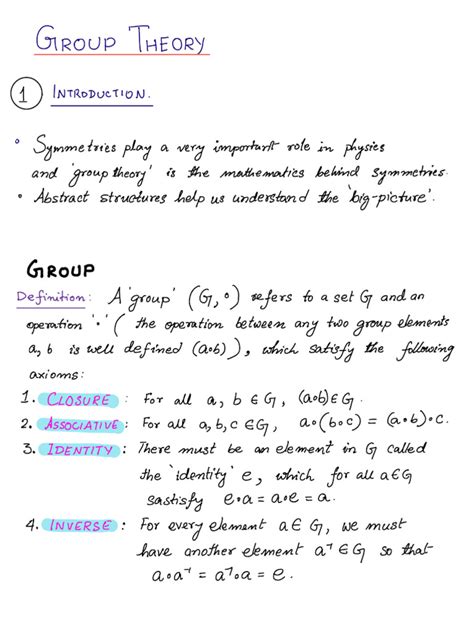 GROUP THEORY
1 INTRODUCTION.
• Symmetries play a very important role in physics
and 'group theory' is the mathematics behind symmetries.
• Abstract structures help us understand the 'big-picture'.
GROUP
Definition: A 'group' (G,∘) refers to a set G and an
operation '∘' ( the operation between any two group elements
a, b is well defined (a∘b) ), which satisfy the following
axioms:
1. CLOSURE : For all a, b ∈ G, (a∘b) ∈ G.
2. ASSOCIATIVE : For all a, b, c ∈ G, a∘(b∘c) = (a∘b)∘c.
3. IDENTITY : There must be an element in G called
the 'identity' e, which for all a ∈ G
sastisfy e∘a = a∘e = a.
4. INVERSE : For every element a ∈ G, we must
have another element a⁻¹ ∈ G so that
a∘a⁻¹ = a⁻¹∘a = e.